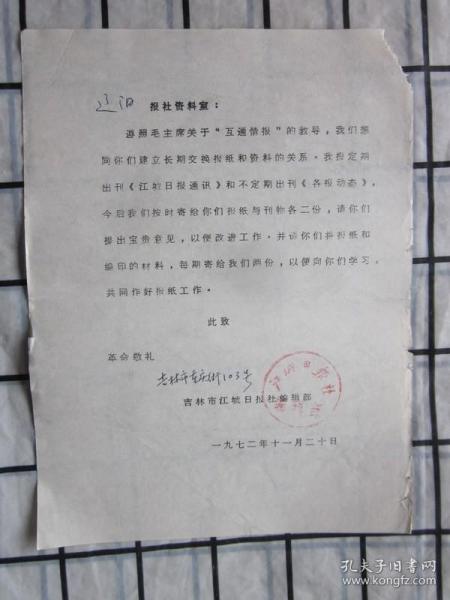 辽阳 报社资料室：
遵照毛主席关于“互通情报”的教导，我们想
同你们建立长期交换报纸和资料的关系。我报定期
出刊《江城日报通讯》和不定期出刊《各报动态》，
今后我们按时寄给你们报纸与刊物各二份，请你们
提出宝贵意见，以便改进工作。并请你们将报纸和
编印的材料，每期寄给我们两份，以便向你们学习，
共同作好报纸工作。
此致
革命敬礼
吉林市重庆街103号
吉林市江城日报社编辑部
江城日报社
一九七二年十一月二十日
孔夫子旧书网
www.kongfz.com